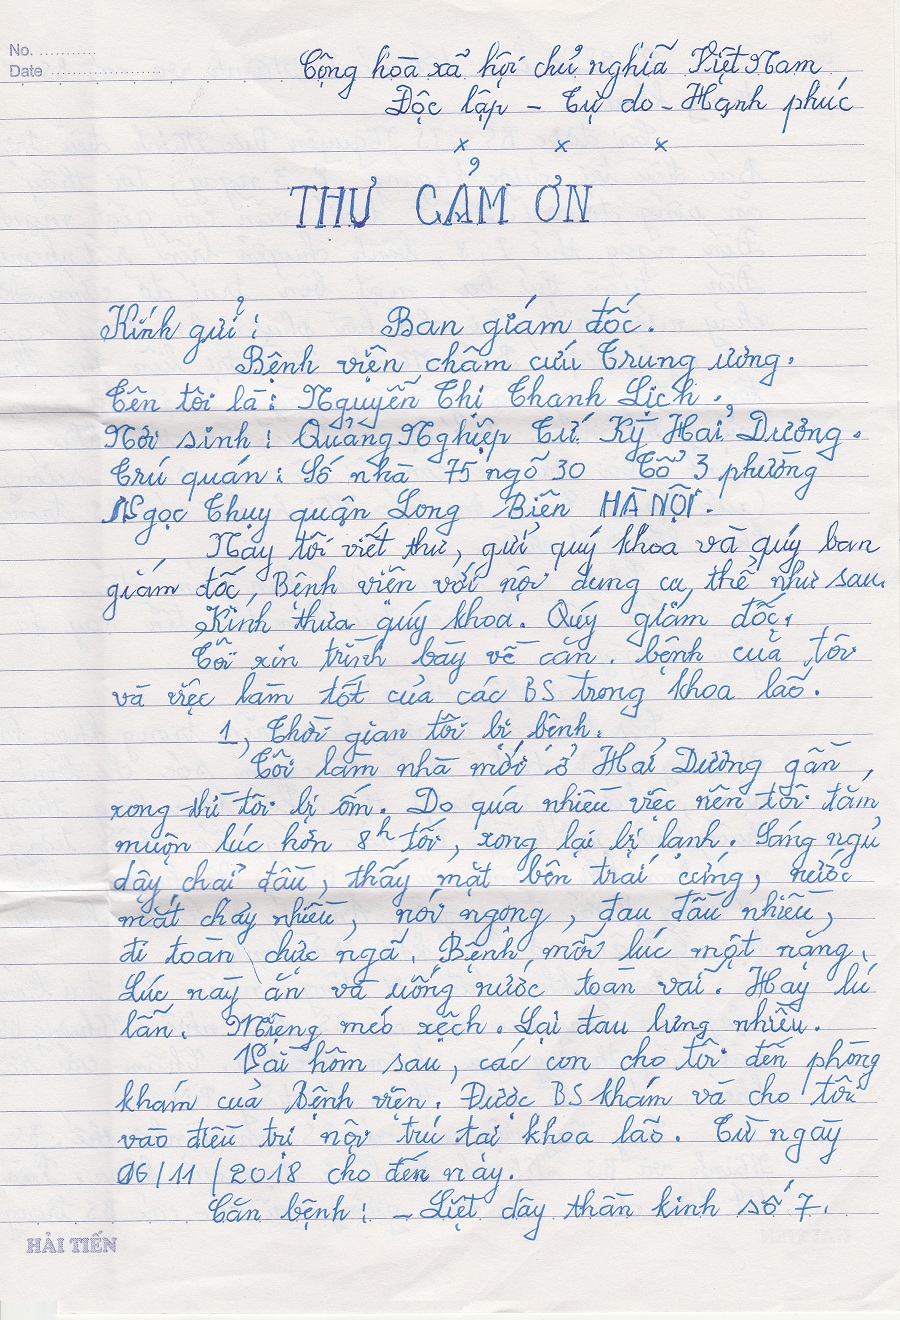 No. ............
Date ......................
Cộng hòa xã hội chủ nghĩa Việt Nam
Độc lập - Tự do - Hạnh phúc
x x x
THƯ CẢM ƠN
Kính gửi : Ban giám đốc.
Bệnh viện châm cứu Trung ương.
Tên tôi là : Nguyễn Thị Thanh Lịch.
Nơi sinh : Quảng Nghiệp Tứ Kỳ Hải Dương.
Trú quán : Số nhà 75 ngõ 30 Tổ 3 phường
Ngọc Thụy quận Long Biên HÀ NỘI.
Nay tôi viết thư, gửi quý khoa và quý ban
giám đốc, Bệnh viện với nội dung cụ thể như sau.
Kính thưa quý khoa. Quý giám đốc.
Tôi xin trình bày về căn bệnh của tôi
và việc làm tốt của các BS trong khoa lão.
1, Thời gian tôi bị bệnh.
Tôi làm nhà mới ở Hải Dương gần
xong thì tôi bị ốm. Do quá nhiều việc nên tôi tắm
muộn lúc hơn 8h tối, xong lại bị lạnh. Sáng ngủ
dậy chải đầu, thấy mặt bên trái cứng, nước
mắt chảy nhiều, nói ngọng, đau đầu nhiều,
đi toàn chực ngã. Bệnh mỗi lúc một nặng.
Lúc này ăn và uống nước toàn vãi. Hay lú
lẫn. Miệng méo xệch. Lại đau lưng nhiều.
Vài hôm sau, các con cho tôi đến phòng
khám của Bệnh viện. Được BS khám và cho tôi
vào điều trị nội trú tại khoa lão. Từ ngày
06/11/2018 cho đến nay.
Căn bệnh : - Liệt dây thần kinh số 7.
HẢI TIẾN